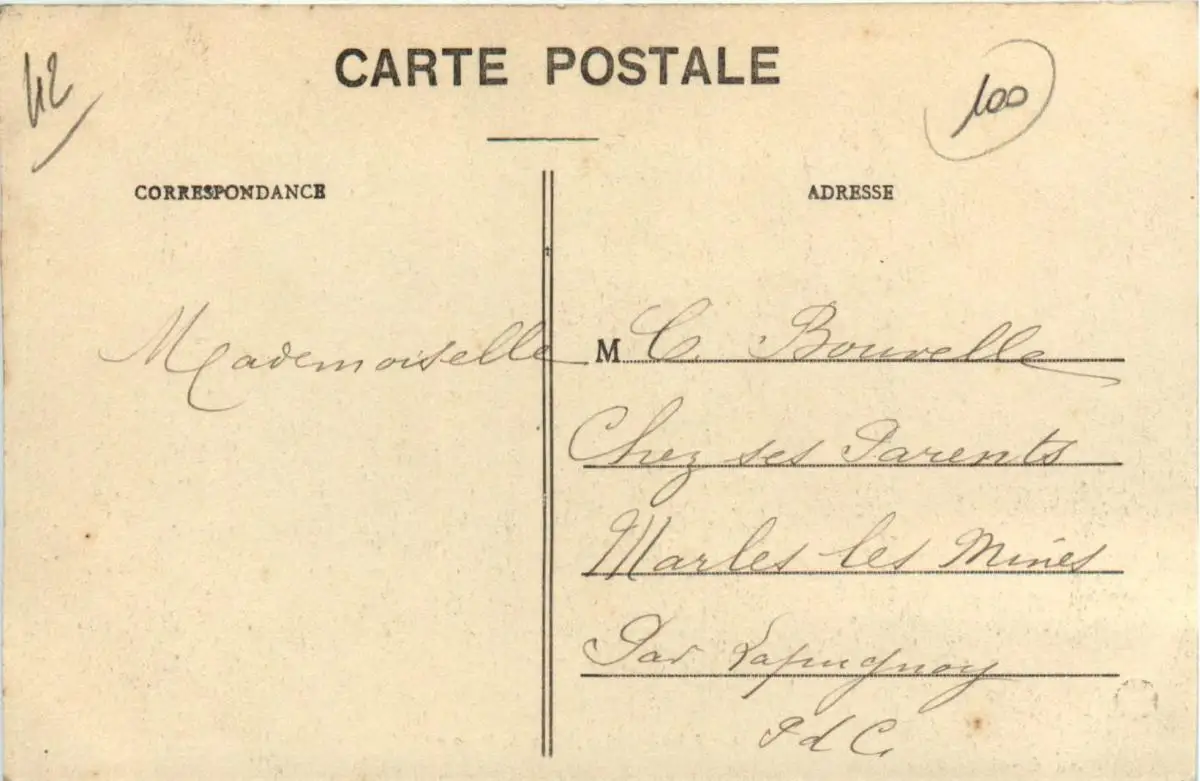 42
CARTE POSTALE
100
CORRESPONDANCE
ADRESSE
Mademoiselle M C. Bouvelle
Chez ses Parents
Marles les Mines
Par Lapugnoy
P d C.